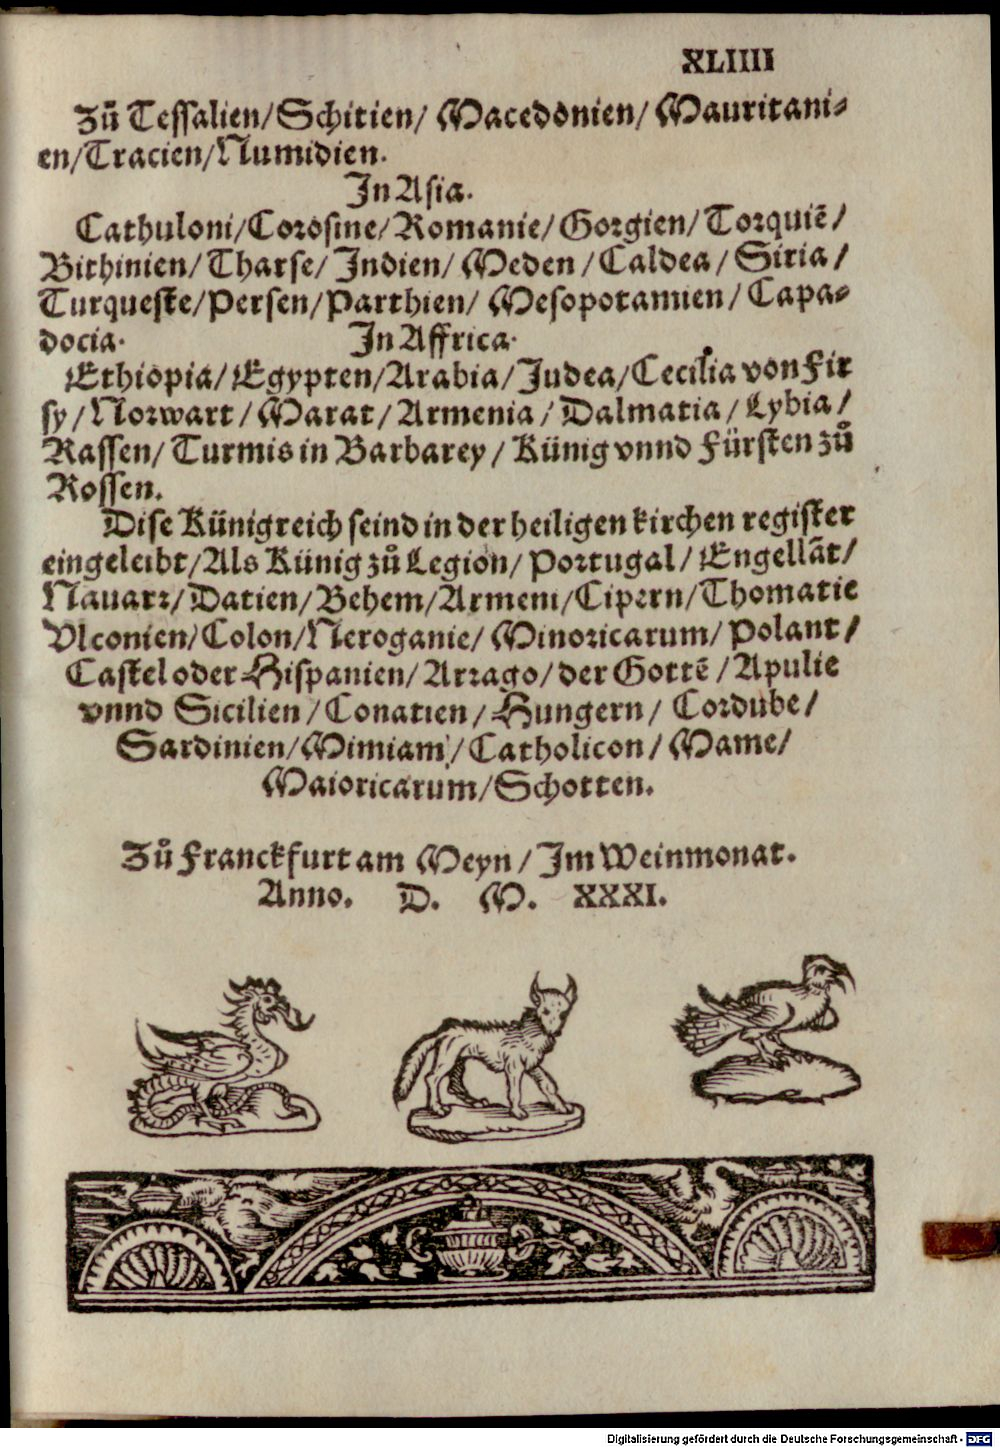 XLIIII
Zů Tessalien/Schitien/ Macedonien/ Mauritani⸗
en/Tracien/Numidien.
In Asia.
Cathuloni/Corosine/Romanie/Gorgien/Torquiē/
Bithinien/Tharse/ Indien/ Meden/Caldea/Siria/
Turqueste/Persen/Parthien/ Mesopotamien/Capa⸗
docia. In Affrica.
Ethiopia/Egypten/Arabia/Judea/Cecilia von Fir
sy/Norwart/Marat/Armenia/Dalmatia/Lybia/
Rassen/ Turmis in Barbarey/ Künig vnnd Fürsten zů
Rossen.
Dise Künigreich seind in der heiligen kirchen register
eingeleibt/Als Künig zů Legion/Portugal/Engellāt/
Nauarr/Datien/Behem/Armeni/Cipern/Thomatie
Vlconien/Colon/Neroganie/Minoricarum/Polant/
Castel oder Hispanien/Arrago/der Gottē/Apulie
vnnd Sicilien/Conatien/Hungern/Cordube/
Sardinien/Mimiam/Catholicon/Mame/
Maioricarum/Schotten.
Zů Franckfurt am Meyn/Im Weinmonat.
Anno. D. M. XXXI.
Digitalisierung gefördert durch die Deutsche Forschungsgemeinschaft - DFG